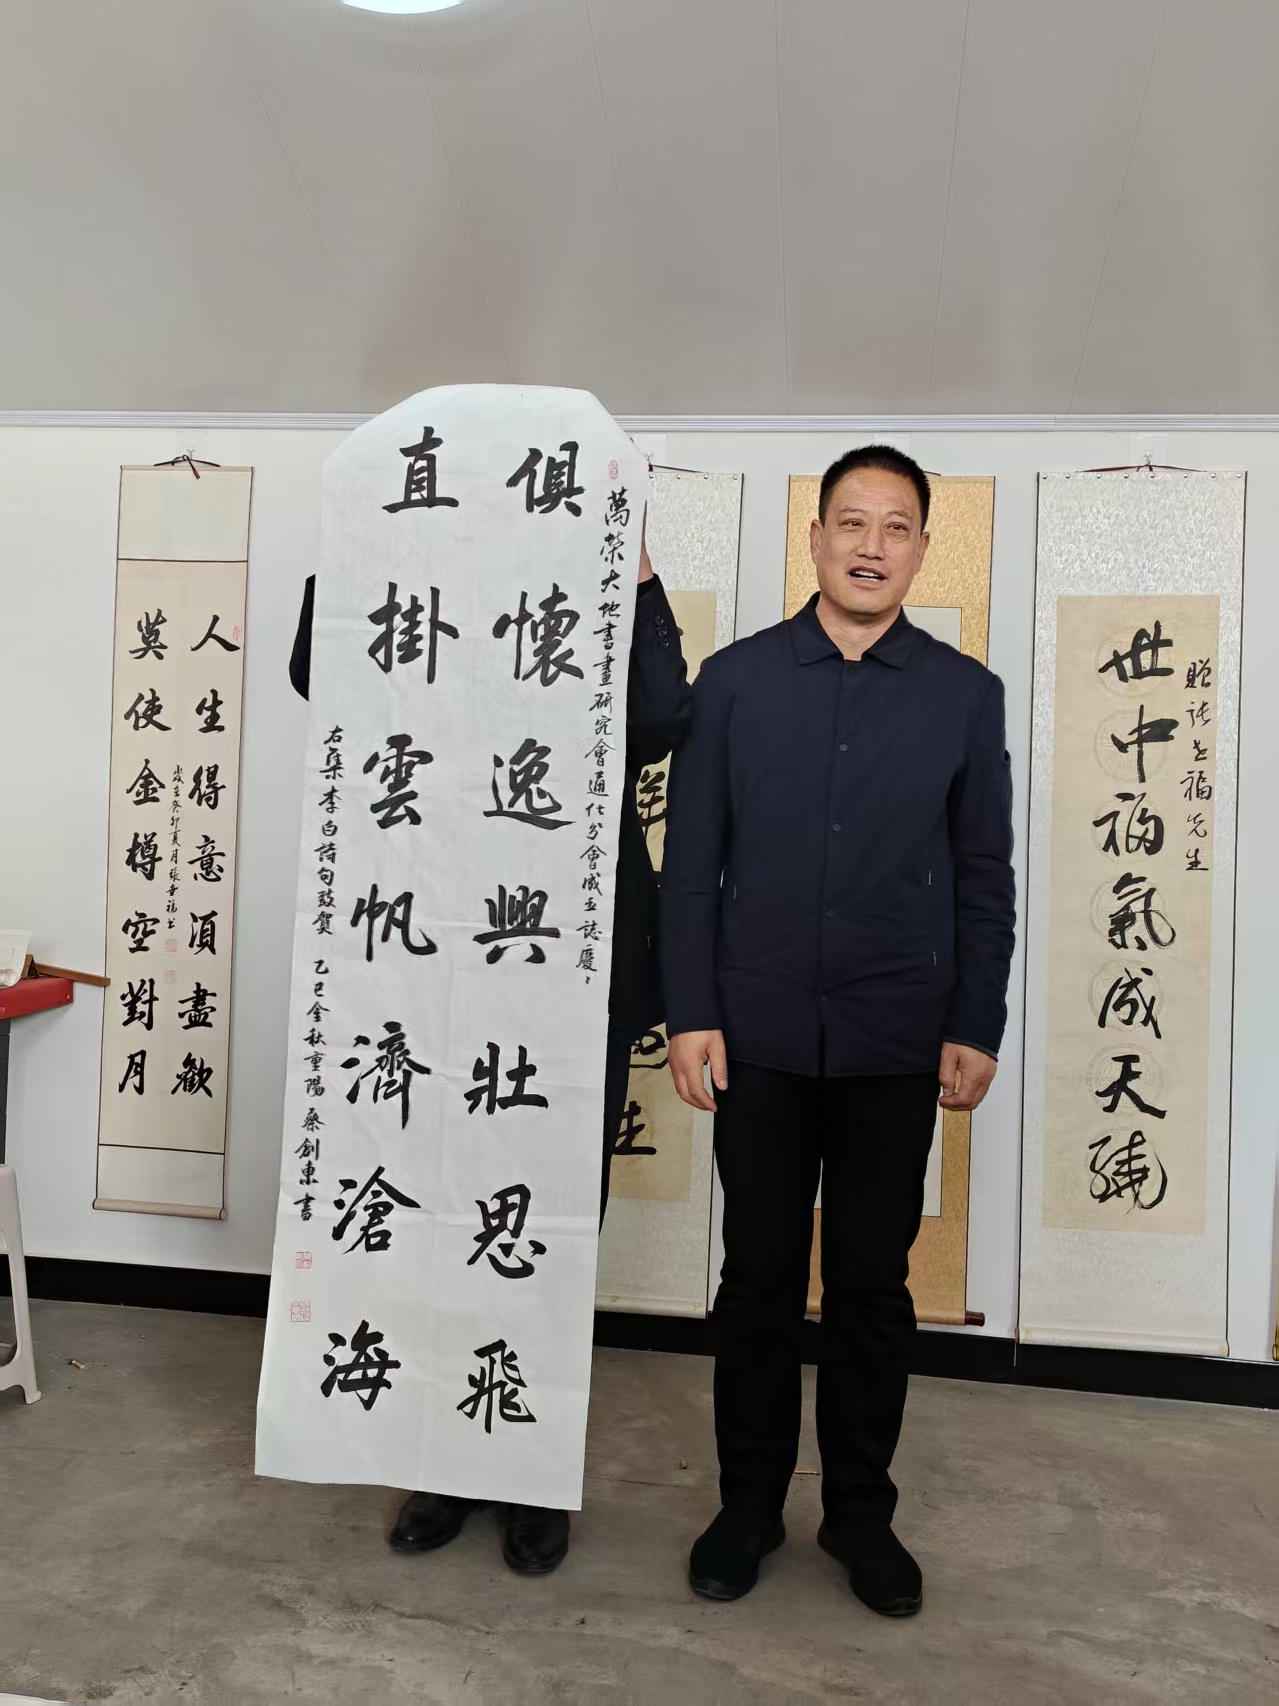 萬榮大地書畫研究會通化分會成立誌慶
俱懷逸興壯思飛
直掛雲帆濟滄海
右集李白詩句致賀 乙巳金秋重陽 蔡創東書
人生得意須盡歡
莫使金樽空對月
歲在癸卯夏月張世福书
贈张世福先生
世中福氣成天繞
羊
生